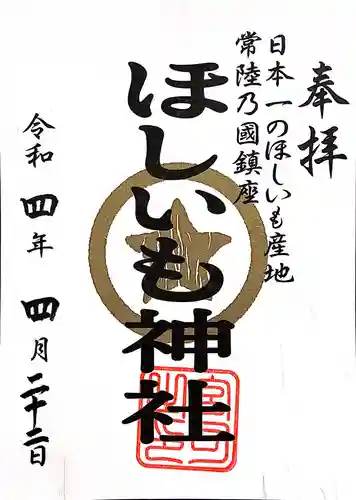 奉拝
日本一のほしいも産地
常陸乃國鎮座
ほしいも神社
令和四年四月二十二日